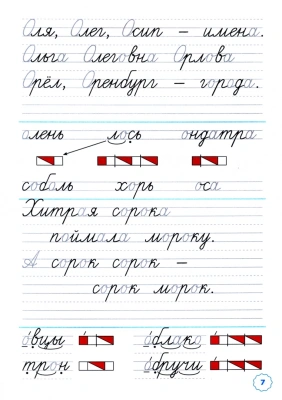 Оля, Олег, Осип – имена.
Ольга Олеговна Орлова
Орёл, Оренбург – города.
олень лось ондатра
соболь хорь оса
Хитрая сорока
поймала мороку.
А сорок сорок –
сорок морок.
о́вцы о́блако
трон о́бручи
7